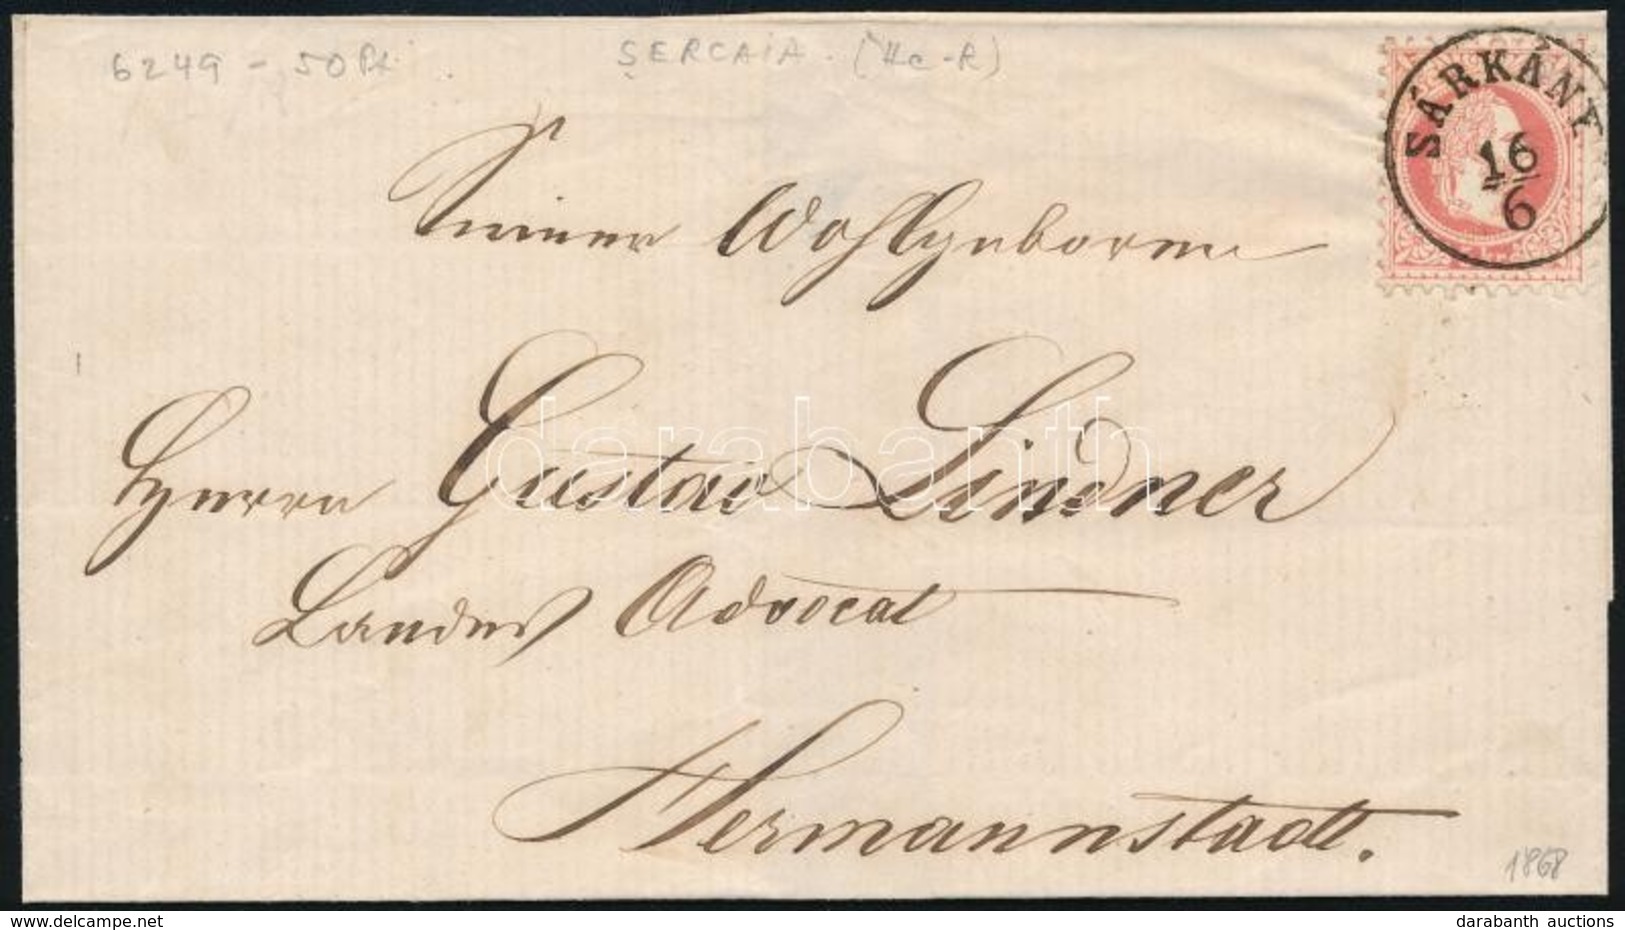 6249 - 50 Pt
ŞERCAIA. (IIc-R)
SÁRKÁNY
16
6
Seiner Wohlgeboren
Herrn Gustav Lindner
Landes Advocat
Hermannstadt.
1868
darabanth
www.delcampe.net
darabanth auctions